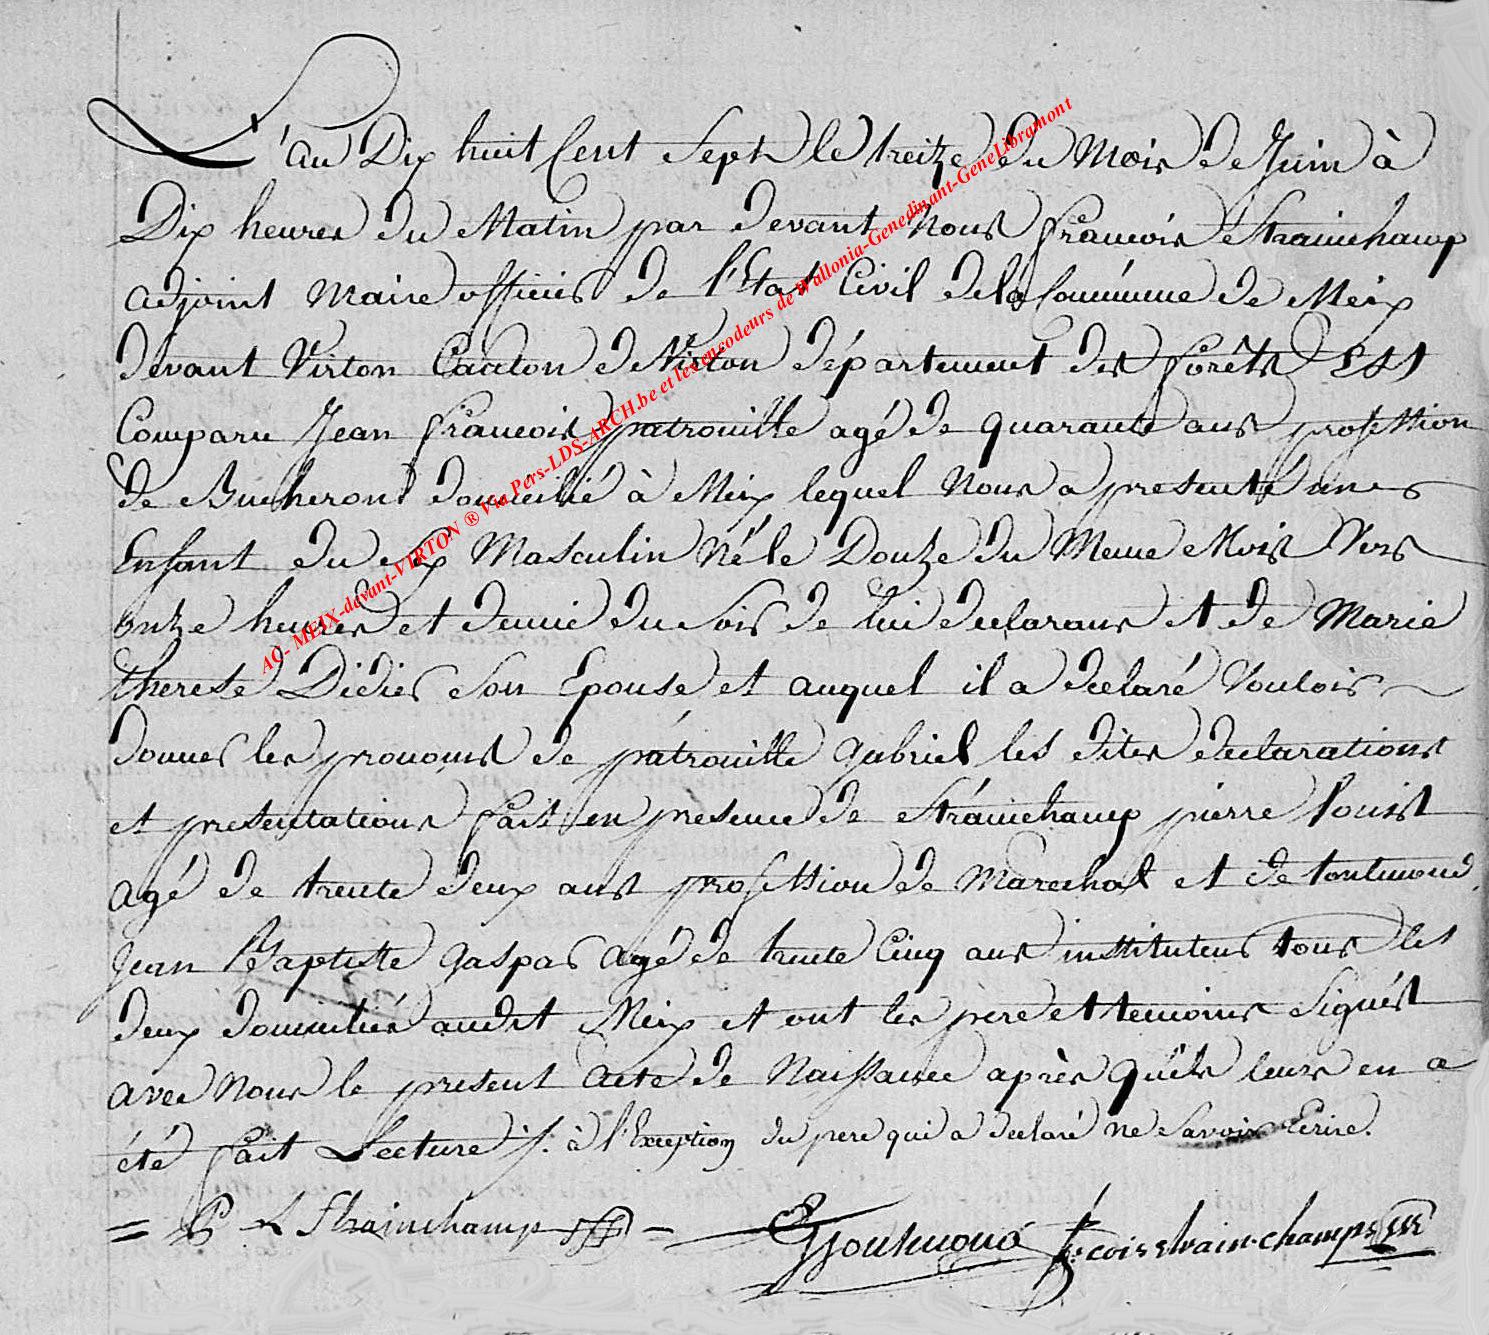 L'an Dix huit Cent Sept le treitze du Mois de Juin à
Dix heures du Matin par devant Nous François Strainchamp
adjoint Maire officier de l'Etat Civil dela Commune de Meix
devant Virton Canton de Virton département des forêts Est
Comparu Jean François patrouille agé de quarante ans profession
de Bucheront domicilié à Meix lequel Nous a presenté un
Enfant du Sex Masculin Né le Doutze du Meme Mois Vers
ontze heures et demie du Soir de lui declarans et de Marie
therese Didier Son Epouse et auquel il a declaré Vouloir
donner les pronoms de pátrouille gabriel les dites declarations
et presentations fait en presence de Stráinchamp pierre louist
agé de trente deux ans profession de Marechal et de toutmond
Jean Baptiste gaspar agé de trente Cinq ans instituteur tous les
deux domiciliés audit Meix et ont les pere et temoins Signést
avec Nous le present acte de Naissance après qu'ils leurs en a
été fait Lecture ./. à l'Exception du pere qui a declaré ne Savoir Ecrire.
= P L Strainchamp = Gtoutmond fcois strainchamps
AC- MEIX-devant-VIRTON ® Via Pers-LDS-ARCH.be et les encodeurs de Wallonia-Genedinant-GeneLibramont